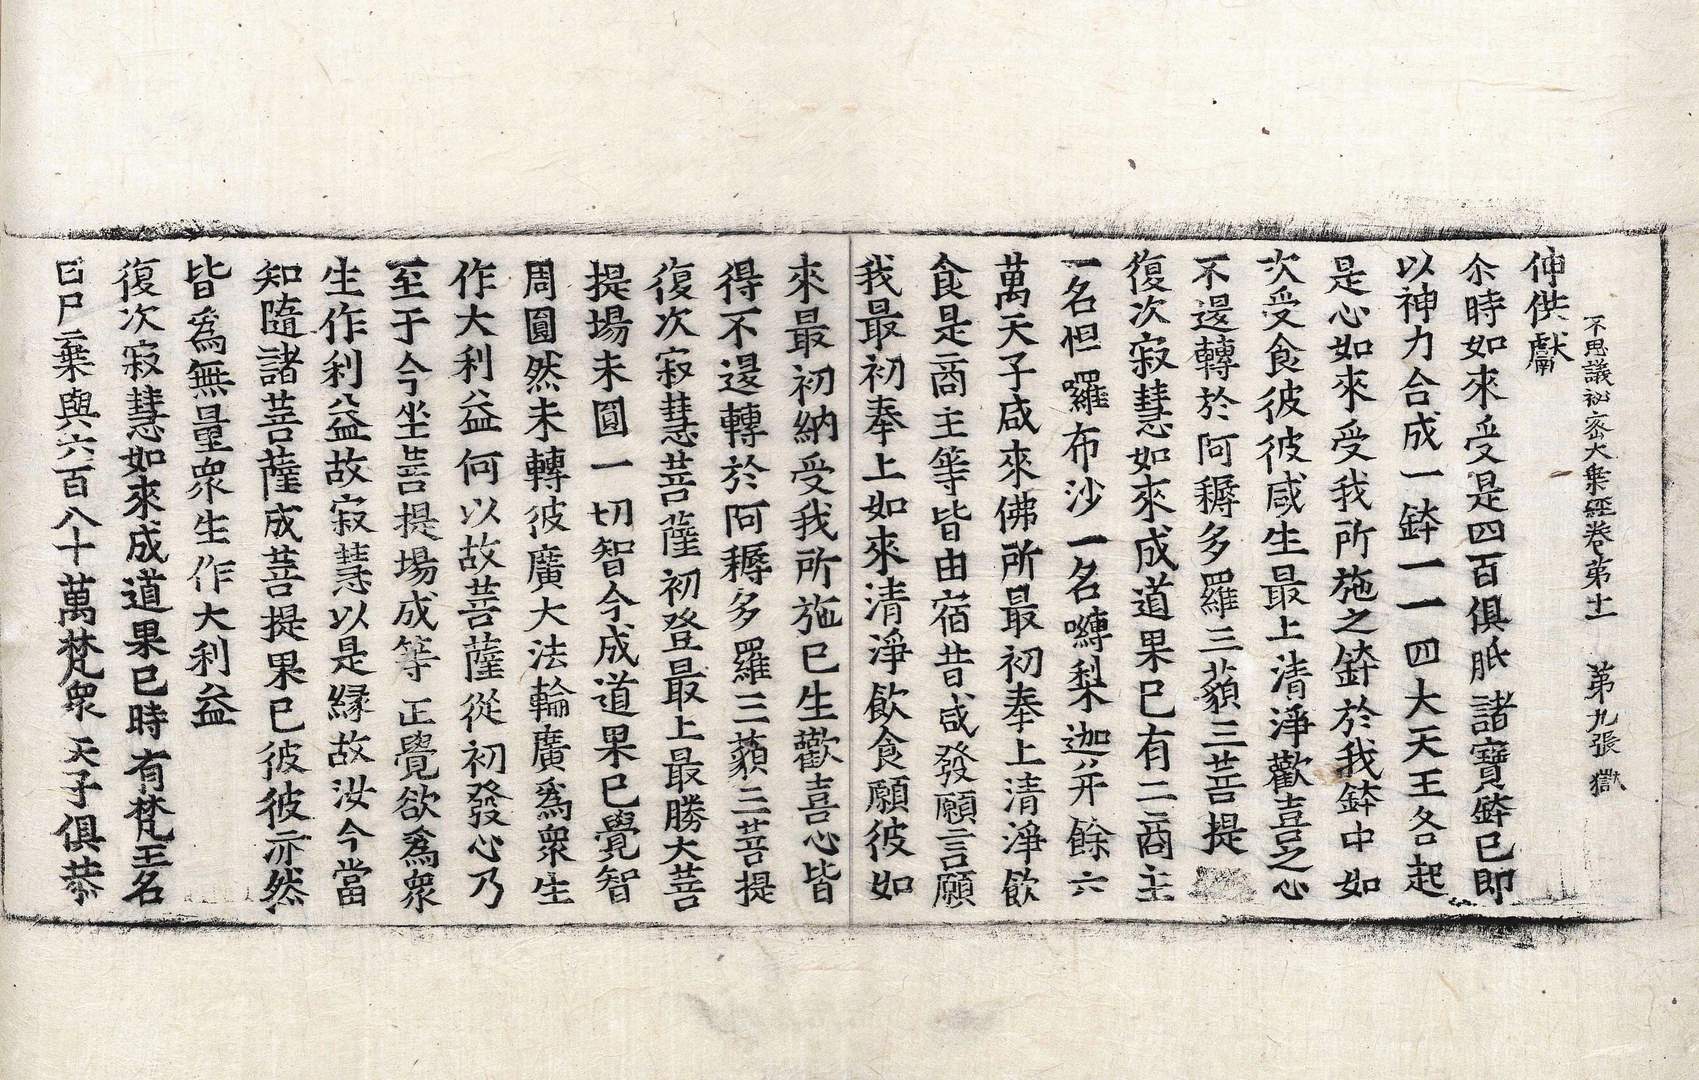 不思議祕密大乗經卷第十一 第九張 獄
伸供獻
尒時如來受是四百俱胝諸寶鉢已即
以神力合成一鉢一一四大天王各起
是心如來受我所施之鉢於我鉢中如
次受食彼彼咸生最上清淨歡喜之心
不退轉於阿耨多羅三藐三菩提
復次寂慧如來成道果已有二商主
一名怛囉布沙一名嚩梨迦并餘六
萬天子咸來佛所最初奉上清淨飲
食是二商主等皆由宿昔咸發願言願
我最初奉上如來清淨飲食願彼如
來最初納受我所施已生歡喜心皆
得不退轉於阿耨多羅三藐三菩提
復次寂慧菩薩初登最上最勝大菩
提場未圓一切智今成道果已覺智
周圓然未轉彼廣大法輪廣爲衆生
作大利益何以故菩薩從初發心乃
至于今坐菩提場成等正覺欲爲衆
生作利益故寂慧以是緣故汝今當
知隨諸菩薩成菩提果已彼彼亦然
皆爲無量衆生作大利益
復次寂慧如來成道果已時有梵王名
曰尸棄與六百八十萬梵衆天子俱恭